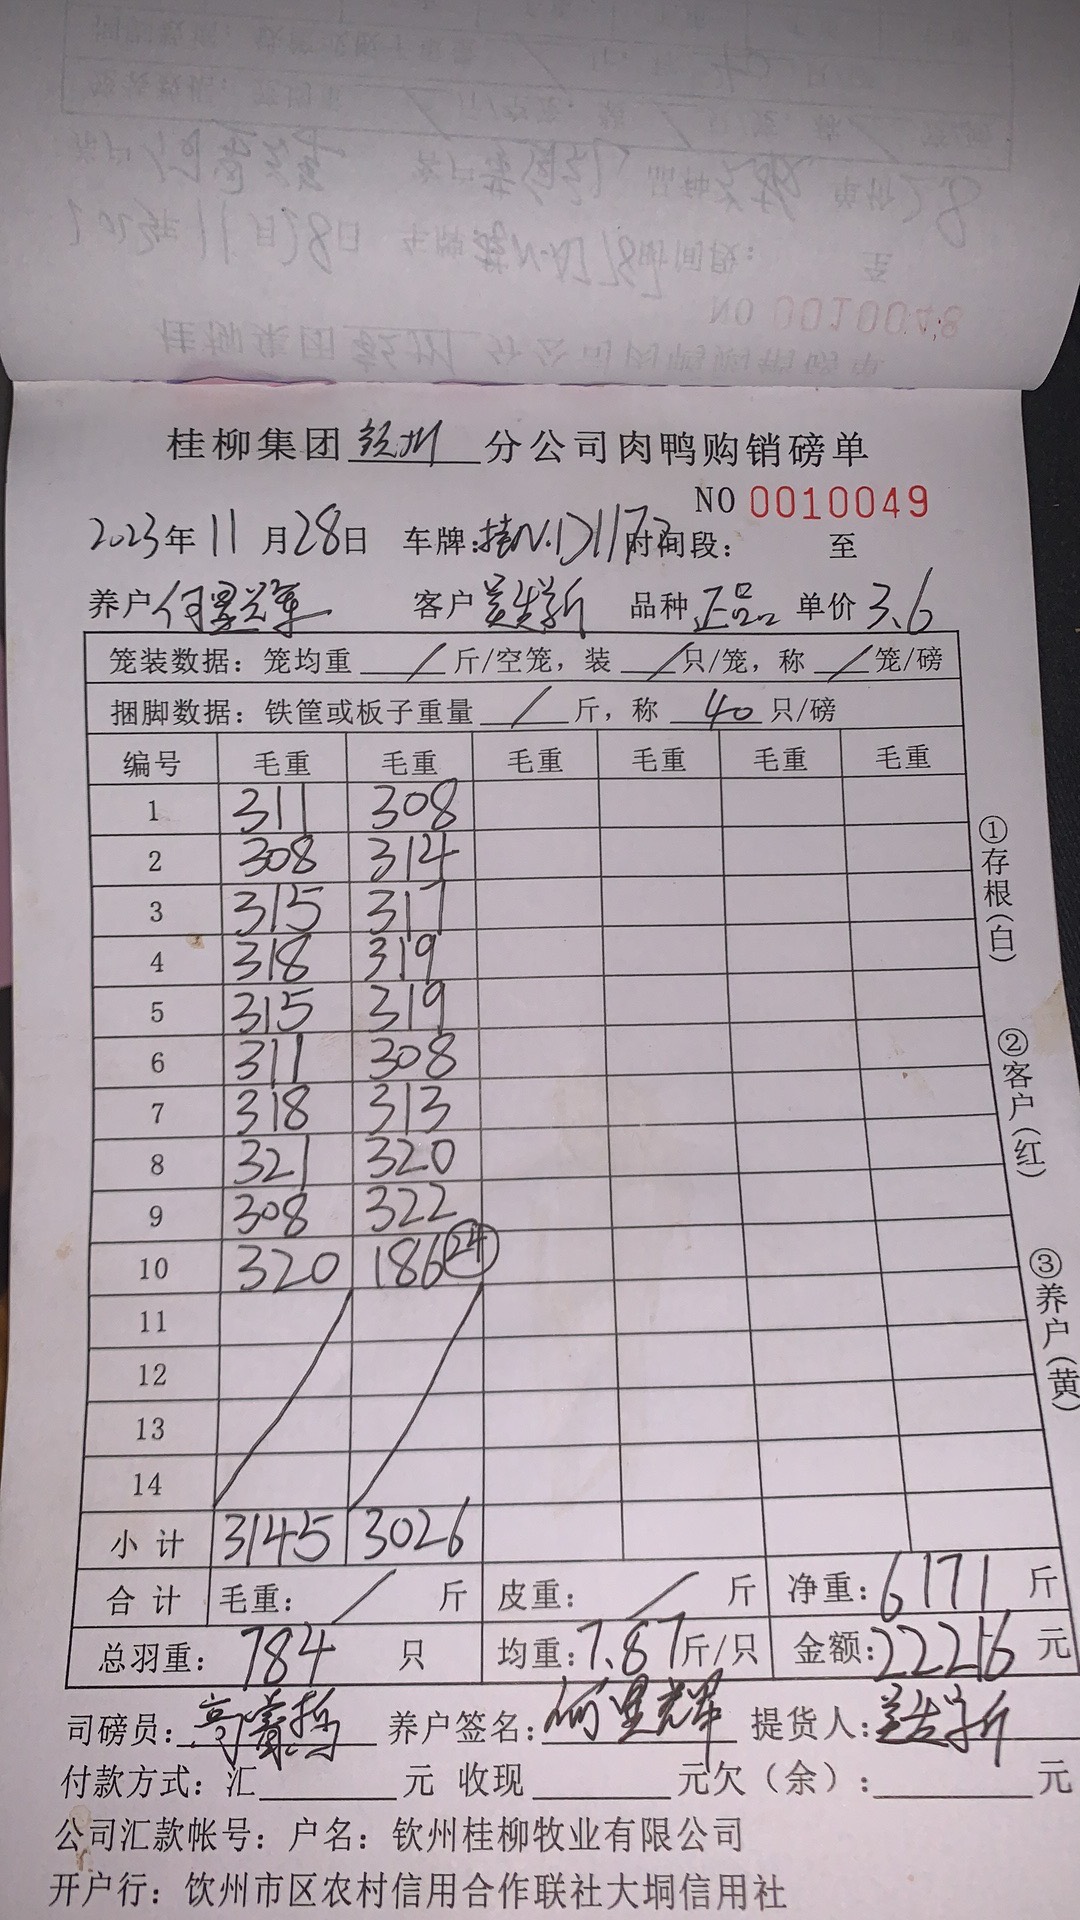 NO 0010048
桂柳集团钦州分公司肉鸭购销磅单
NO 0010049
2023年11月28日 车牌:桂N·D1173时间段: 至
养户 何显辉 客户 品种 正品 单价 3.6
笼装数据: 笼均重 / 斤/空笼, 装 / 只/笼, 称 / 笼/磅
捆脚数据: 铁筐或板子重量 / 斤, 称 40 只/磅
编号 毛重 毛重 毛重 毛重 毛重 毛重
1 311 308
2 308 314
3 315 317
4 318 319
5 315 319
6 311 308
7 318 313
8 321 320
9 308 322
10 320 186 24
11
12
13
14
小计 3145 3026
合计 毛重: / 斤 皮重: / 斤 净重: 6171 斤
总羽重: 784 只 均重: 7.87斤/只 金额: 22216 元
司磅员: 养户签名: 何显辉 提货人:
付款方式: 汇 元 收现 元欠(余): 元
公司汇款帐号: 户名: 钦州桂柳牧业有限公司
开户行: 钦州市区农村信用合作联社大垌信用社
①存根(白)
②客户(红)
③养户(黄)